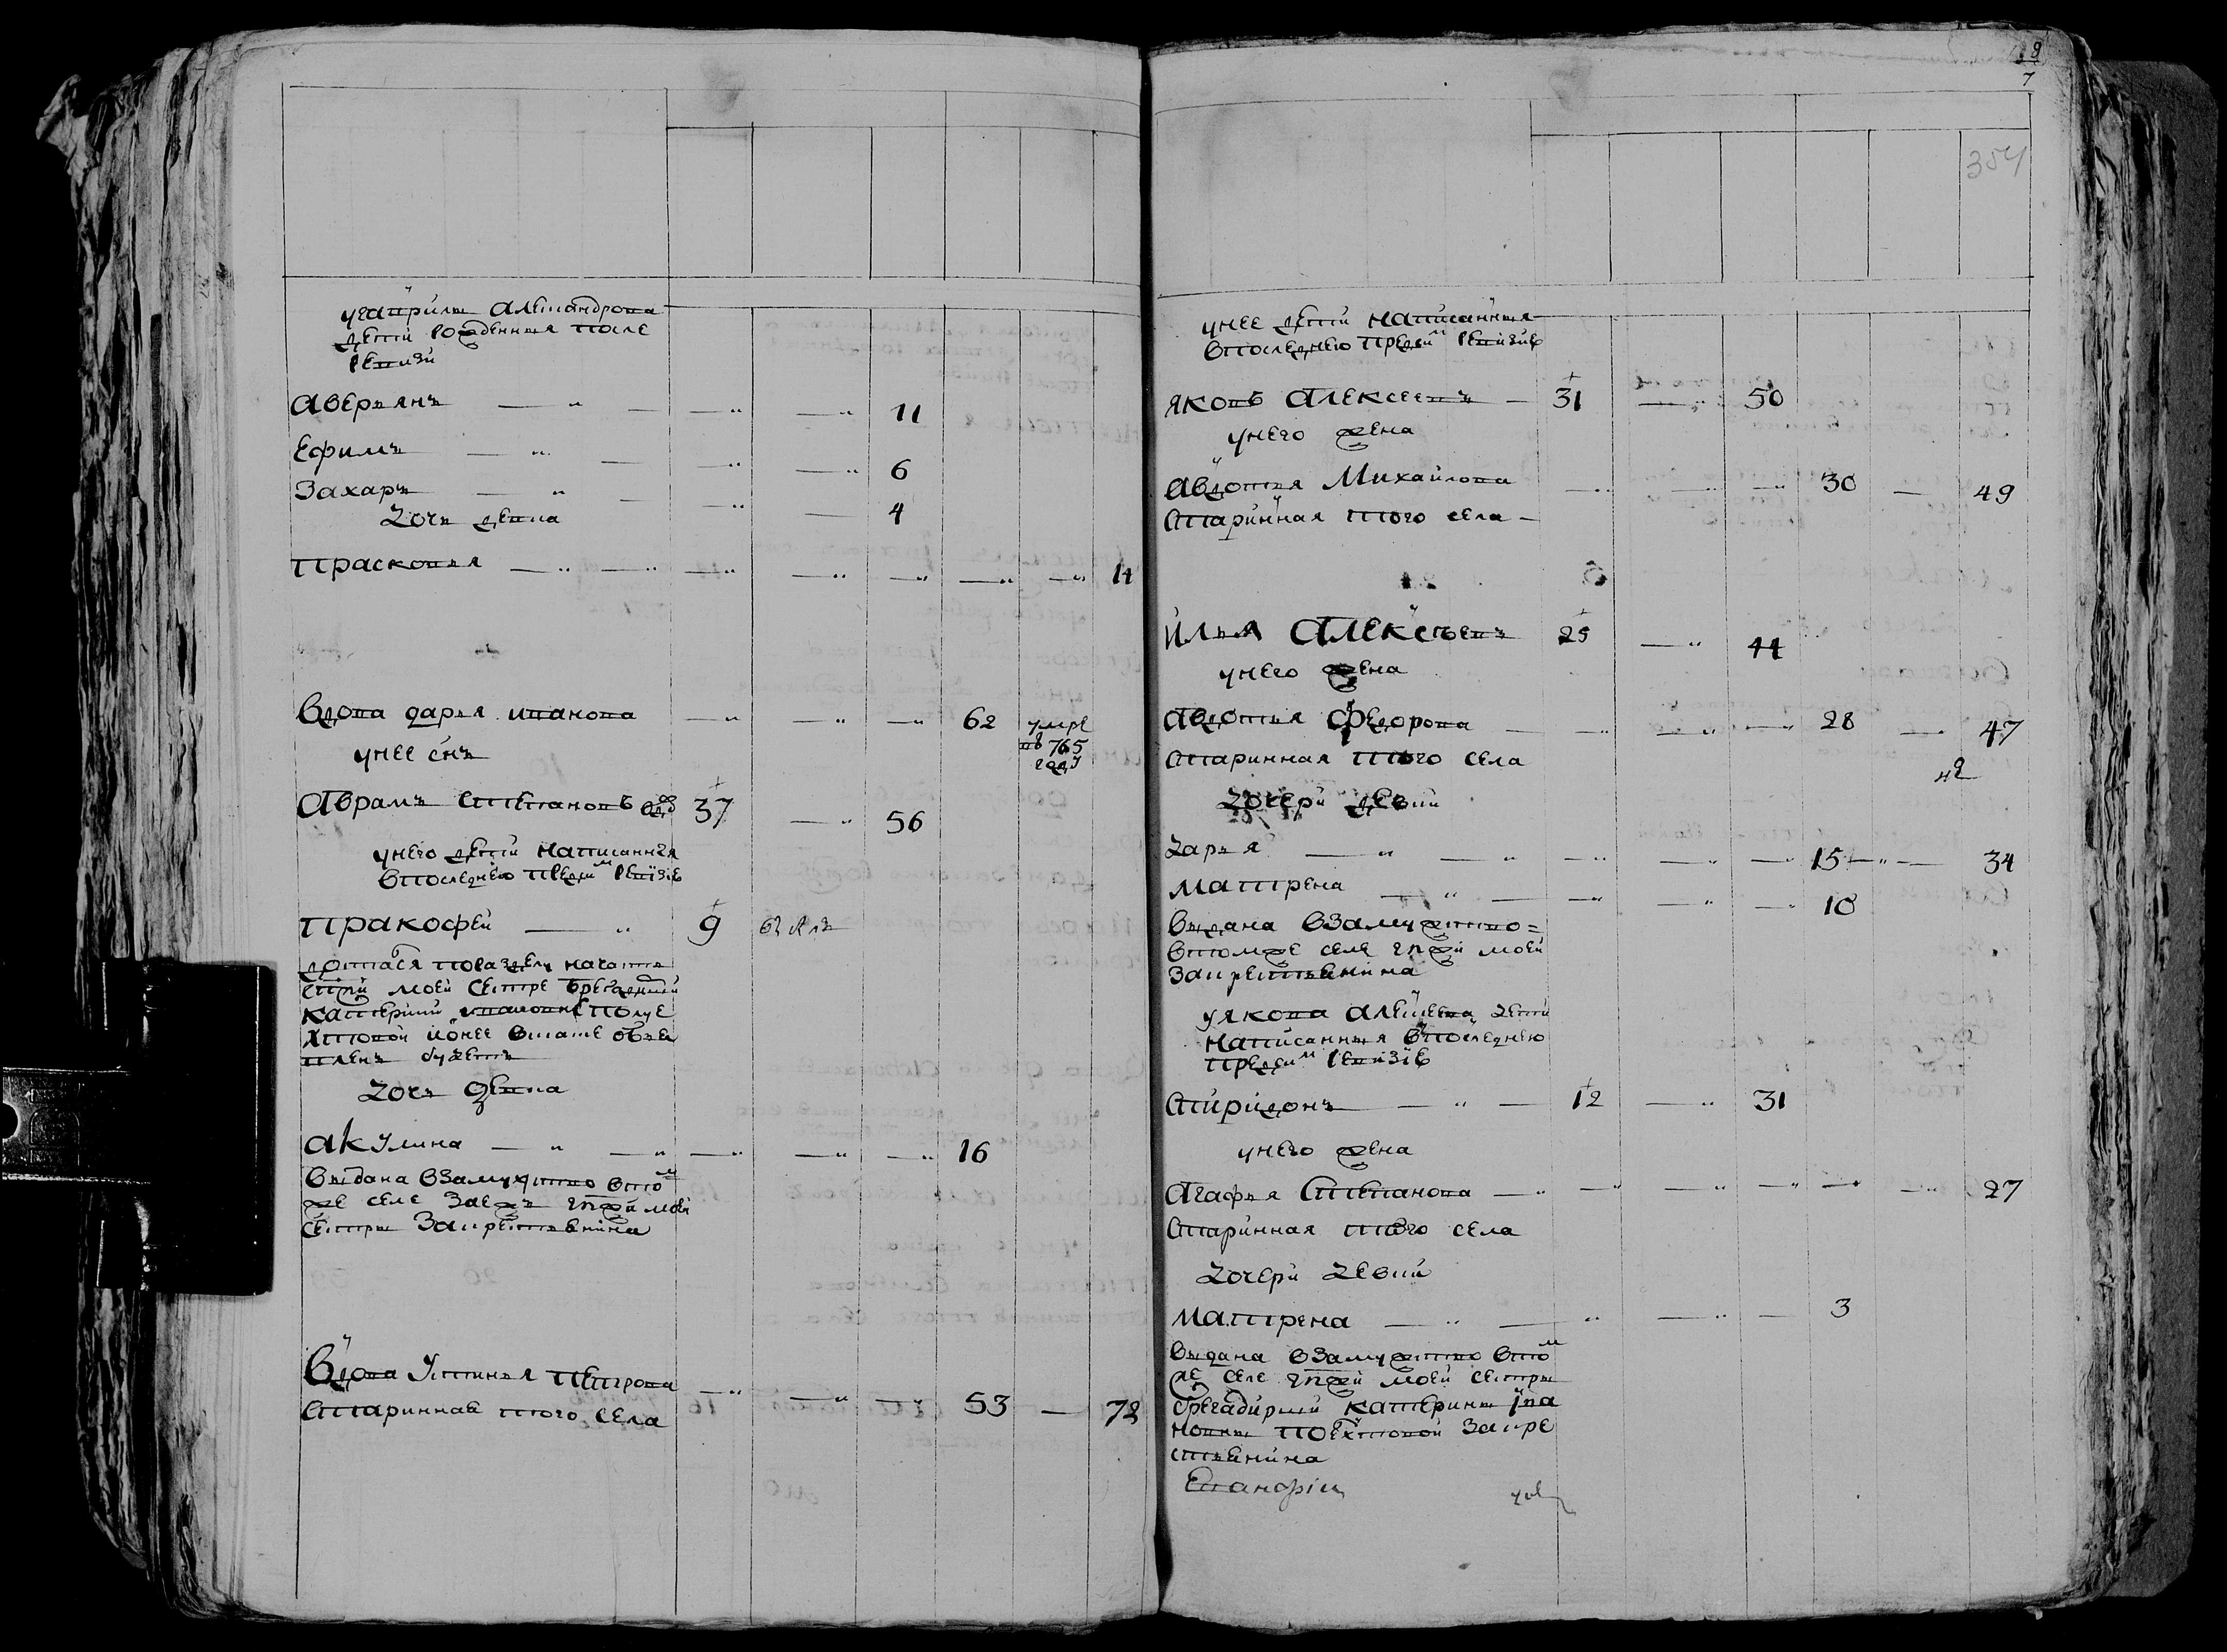 у гаврилы алеѯандрова
дети рожденныя после
ревизи
аверьянъ — " — — " — " 11
ефимъ — " — — " — " 6
захаръ — " — — " — 4
дочь девка
прасковья — " — " — " — " — " — " — " 14
вдова дарья иванова — " — " — " 62 умре
в 765
году
у нее снъ
аврамъ степановъ вдв 37 — " 56
у него дети написанныя
в последнею пред сим ревизiю
пракофей — " 9
достался по разделу
гпжи моей сестре брегадирши
катерины ивановне полуе
хтовой и о нее в таке объяв
вленъ будетъ
дочь девка
акулина — " — " — " — " — " 16
выдана в замужство в том
же селе за еежъ гпжи моей
сестры за крестьянина
вдова устинья петрова — " — " — " 53 — 72
старинная того села
8
7
354
у нее дети написанныя
в последнею пред сим ревизию
яковъ алексеевъ — 31 — " 50
у него жена
авдотья михайлова — " — " — " 30 — 49
старинная того села —
илья алексѣевъ 25 — " 44
у него жена
авдотья федорова — — " — " — " 28 — 47
старинная того села
дочери девки
дарья — " — " — " — " — " 15 — " — 34
матрена — " — — " — " — " 10
выдана в замужство =
в томже селе гпжи моей
за крестьянина
у якова алеѯеева дети
написанныя в последнею
пред сим ревизiю
спиридонъ — " — 12 — " 31
у него жена
агафья степанова — " — " — " — " — " — " 27
старинная того села
дочери девки
матрена — " — " — " — 3
выдана в замужство в том
же селе гпжи моей сестры
брегадирши катерины iва
новны полуехтовой за кре
стьянина